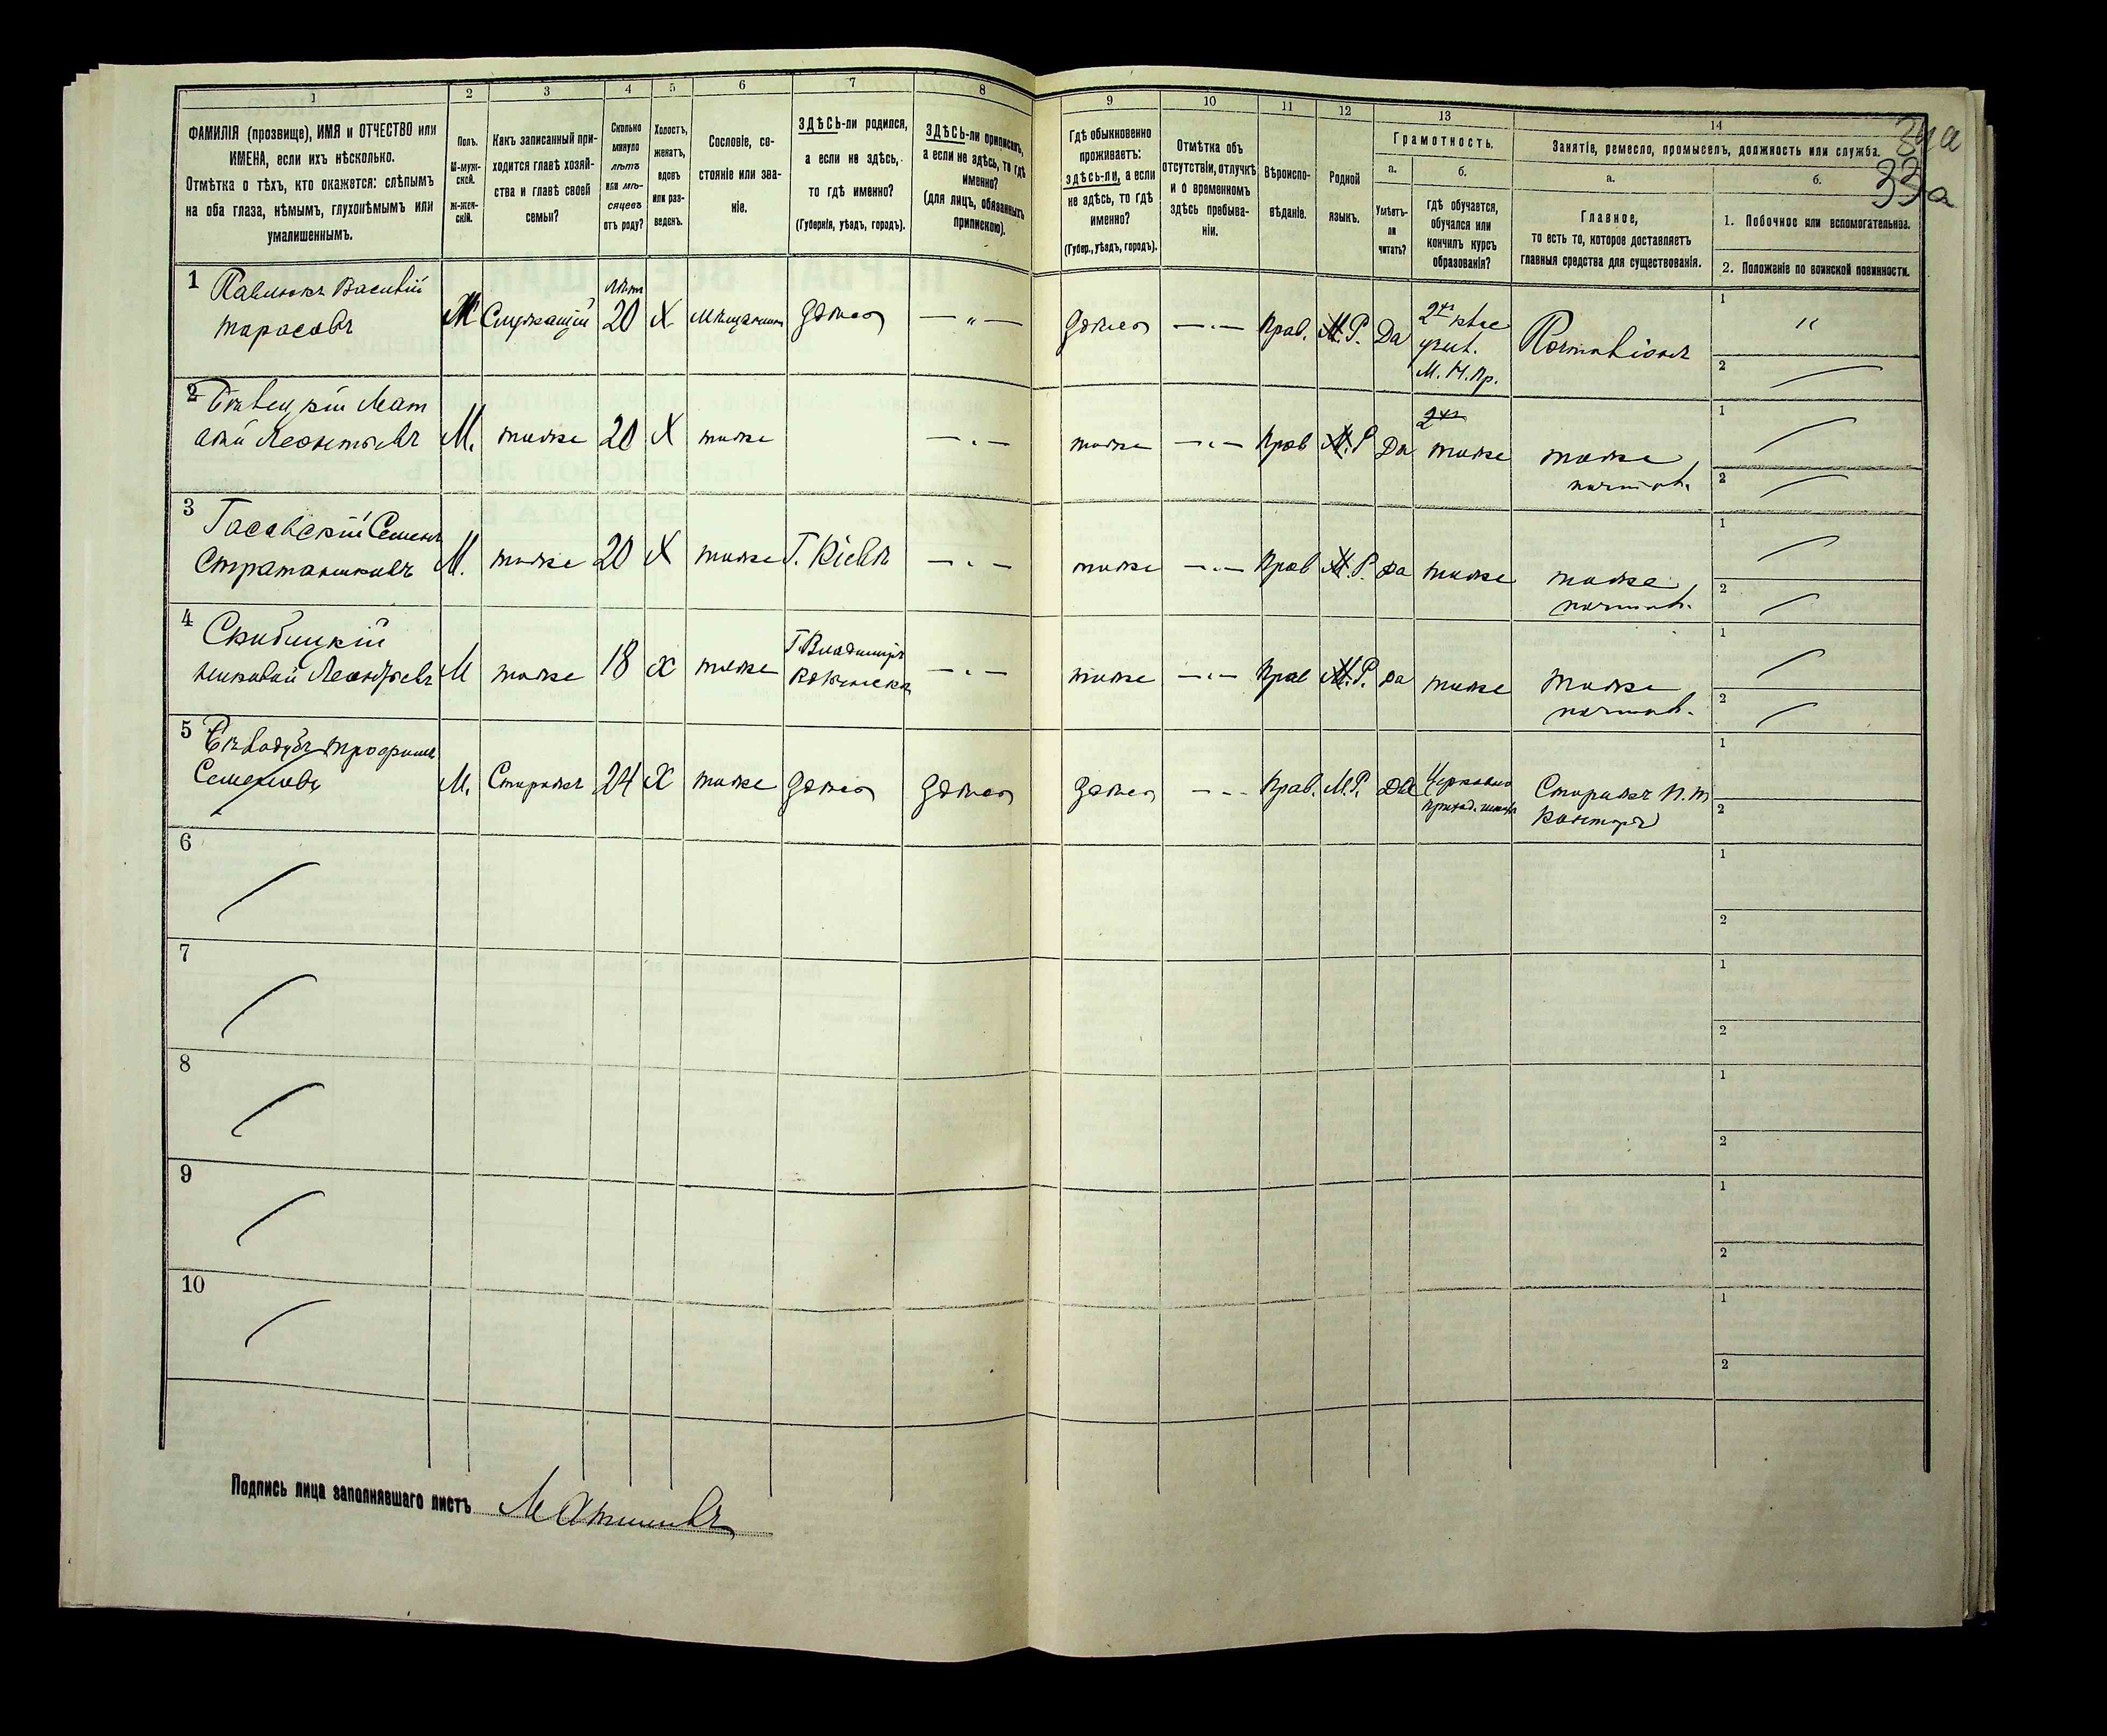 34а
33а
1
2
3
4
5
6
7
8
9
10
11
12
13
14
ФАМИЛІЯ (прозвище), ИМЯ и ОТЧЕСТВО или
ИМЕНА, если ихъ нѣсколько.
Отмѣтка о тѣхъ, кто окажется: слѣпымъ
на оба глаза, нѣмымъ, глухонѣмымъ или
умалишеннымъ.
Полъ.
М-муж-
ской.
Ж-жен-
скій.
Какъ записанный при-
ходится главѣ хозяй-
ства и главѣ своей
семьи?
Сколько
минуло
лѣтъ
или мѣ-
сяцевъ
отъ роду?
Холостъ,
женатъ,
вдовъ
или раз-
веденъ.
Сословіе, со-
стояніе или зва-
ніе.
ЗДѢСЬ-ли родился,
а если не здѣсь,
то гдѣ именно?
(Губернія, уѣздъ, городъ).
ЗДѢСЬ-ли приписанъ,
а если не здѣсь, то гдѣ
именно?
(для лицъ, обязанныхъ
припискою).
Гдѣ обыкновенно
проживаетъ:
здѣсь-ли, а если
не здѣсь, то гдѣ
именно?
(Губер., уѣздъ, городъ).
Отмѣтка объ
отсутствіи, отлучкѣ
и о временномъ
здѣсь пребыва-
ніи.
Вѣроиспо-
вѣданіе.
Родной
языкъ.
Грамотность.
а.
Умѣетъ-
ли
читать?
б.
Гдѣ обучается,
обучался или
кончилъ курсъ
образованія?
Занятіе, ремесло, промыселъ, должность или служба.
а.
Главное,
то есть то, которое доставляетъ
главныя средства для существованія.
б.
1. Побочное или вспомогательное.
2. Положеніе по воинской повинности.
1
Павлюкъ Василій
Тарасовъ
М
Служащій
Лѣт
20
Х
Мѣщанинъ
Здѣсь
— „ —
Здѣсь
— „ —
Прав.
М.Р.
Да
2хъ клас
учил.
М.Н.Пр.
Почталіонъ
1
"
2
2
Леонтьевъ
М.
тоже
20
Х
тоже
— „ —
тоже
— „ —
Прав
М.Р
Да
2хъ
тоже
тоже
почтал.
1
2
3
Семенъ
М.
тоже
20
Х
тоже
Г. Кіевъ
— „ —
тоже
— „ —
Прав
М.Р.
Да
тоже
тоже
почтал.
1
2
4
Скибицкій
Николай Леонтьевъ
М
тоже
18
Х
тоже
Г. Владиміръ
Волынска
— „ —
тоже
— „ —
Прав
М.Р.
Да
тоже
тоже
почтал.
1
2
5
Трофимъ
Семеновъ
М.
Сторожъ
24
Х
тоже
Здѣсь
Здѣсь
Здѣсь
— „ —
Прав.
М.Р.
Да
Церковно
приход. школа
Сторожъ П.Т
Конторы
1
2
6
1
2
7
1
2
8
1
2
9
1
2
10
1
2
Подпись лица заполнявшаго листъ